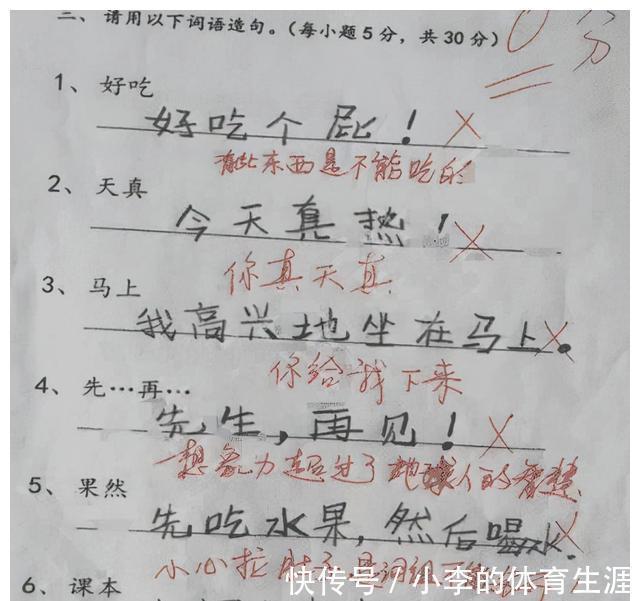 三、请用以下词语造句。(每小题5分，共30分)
0分
1、好吃
好吃个屁！
有些东西是不能吃的
2、天真
今天真热！
你真天真
3、马上
我高兴地坐在马上。
你给我下来
4、先…再…
先生，再见！
想象力超过了地球人的智慧
5、果然
先吃水果，然后喝水。
小心拉肚子 是词组
6、课本
快传号/小李的体育生涯